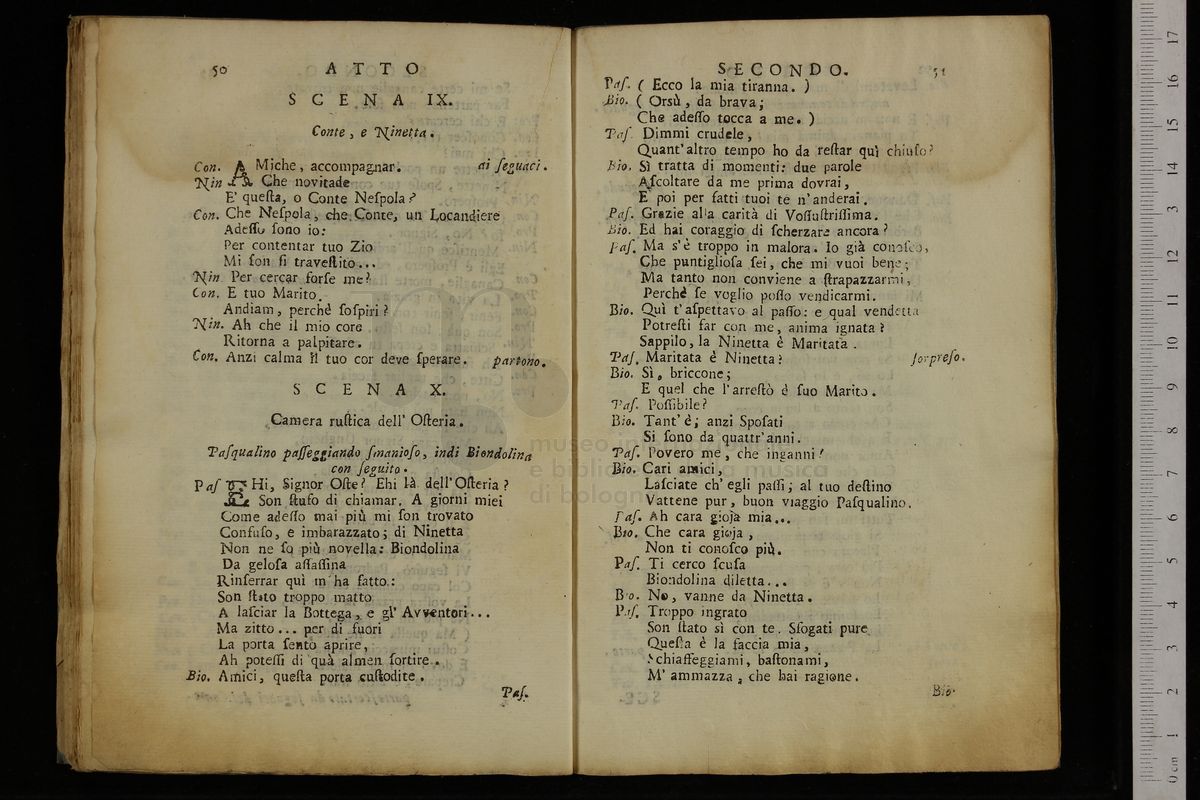 50 ATTO
SCENA IX.
Conte, e Ninetta.
Con. AMiche, accompagnar. ai ſeguaci.
Nin Che novitade
E' queſta, o Conte Neſpola?
Con. Che Neſpola, che Conte, un Locandiere
Adeſſo ſono io:
Per contentar tuo Zio
Mi ſon ſi traveſtito...
Nin Per cercar forſe me?
Con. E tuo Marito.
Andiam, perchè ſoſpiri?
Nin. Ah che il mio core
Ritorna a palpitare.
Con. Anzi calma il tuo cor deve ſperare. partono.
SCENA X.
Camera ruſtica dell' Oſteria.
Paſqualino paſſeggiando ſmanioſo, indi Biondolina
con ſeguito.
Paſ EHi, Signor Oſte? Ehi là dell'Oſteria?
Son ſtufo di chiamar. A giorni miei
Come adeſſo mai più mi ſon trovato
Confuſo, e imbarazzato; di Ninetta
Non ne ſo più novella: Biondolina
Da geloſa aſſaſſina
Rinſerrar quì m'ha fatto:
Son ſtato troppo matto
A laſciar la Bottega, e gl' Avventori...
Ma zitto... per di fuori
La porta ſento aprire,
Ah poteſſi di quà almen ſortire.
Bio. Amici, queſta porta cuſtodite.
Paſ.
SECONDO. 51
Paſ. ( Ecco la mia tiranna. )
Bio. ( Orsù, da brava;
Che adeſſo tocca a me. )
Paſ. Dimmi crudele,
Quant'altro tempo ho da reſtar quì chiuſo?
Bio. Sì tratta di momenti: due parole
Aſcoltare da me prima dovrai,
E poi per fatti tuoi te n'anderai.
Paſ. Grazie alla carità di Voſſuſtriſſima.
Bio. Ed hai coraggio di ſcherzare ancora?
Paſ. Ma s'è troppo in malora. Io già conoſco,
Che puntiglioſa ſei, che mi vuoi bene;
Ma tanto non conviene a ſtrapazzarmi,
Perchè ſe voglio poſſo vendicarmi.
Bio. Quì t'aſpettavo al paſſo: e qual vendetta
Potreſti far con me, anima ignata?
Sappilo, la Ninetta è Maritata.
Paſ. Maritata è Ninetta? ſorpreſo.
Bio. Sì, briccone;
E quel che l'arreſtò è ſuo Marito.
Paſ. Poſſibile?
Bio. Tant' è; anzi Spoſati
Si ſono da quattr'anni.
Paſ. Povero me, che inganni!
Bio. Cari amici,
Laſciate ch'egli paſſi; al tuo deſtino
Vattene pur, buon viaggio Paſqualino.
Paſ. Ah cara gioja mia...
Bio. Che cara gioja,
Non ti conoſco più.
Paſ. Ti cerco ſcuſa
Biondolina diletta...
Bio. No, vanne da Ninetta.
Paſ. Troppo ingrato
Son ſtato sì con te. Sfogati pure
Queſta è la faccia mia,
Schiaffeggiami, baſtonami,
M' ammazza, che hai ragione.
Bio.
museo
e biblio musica
di bologn